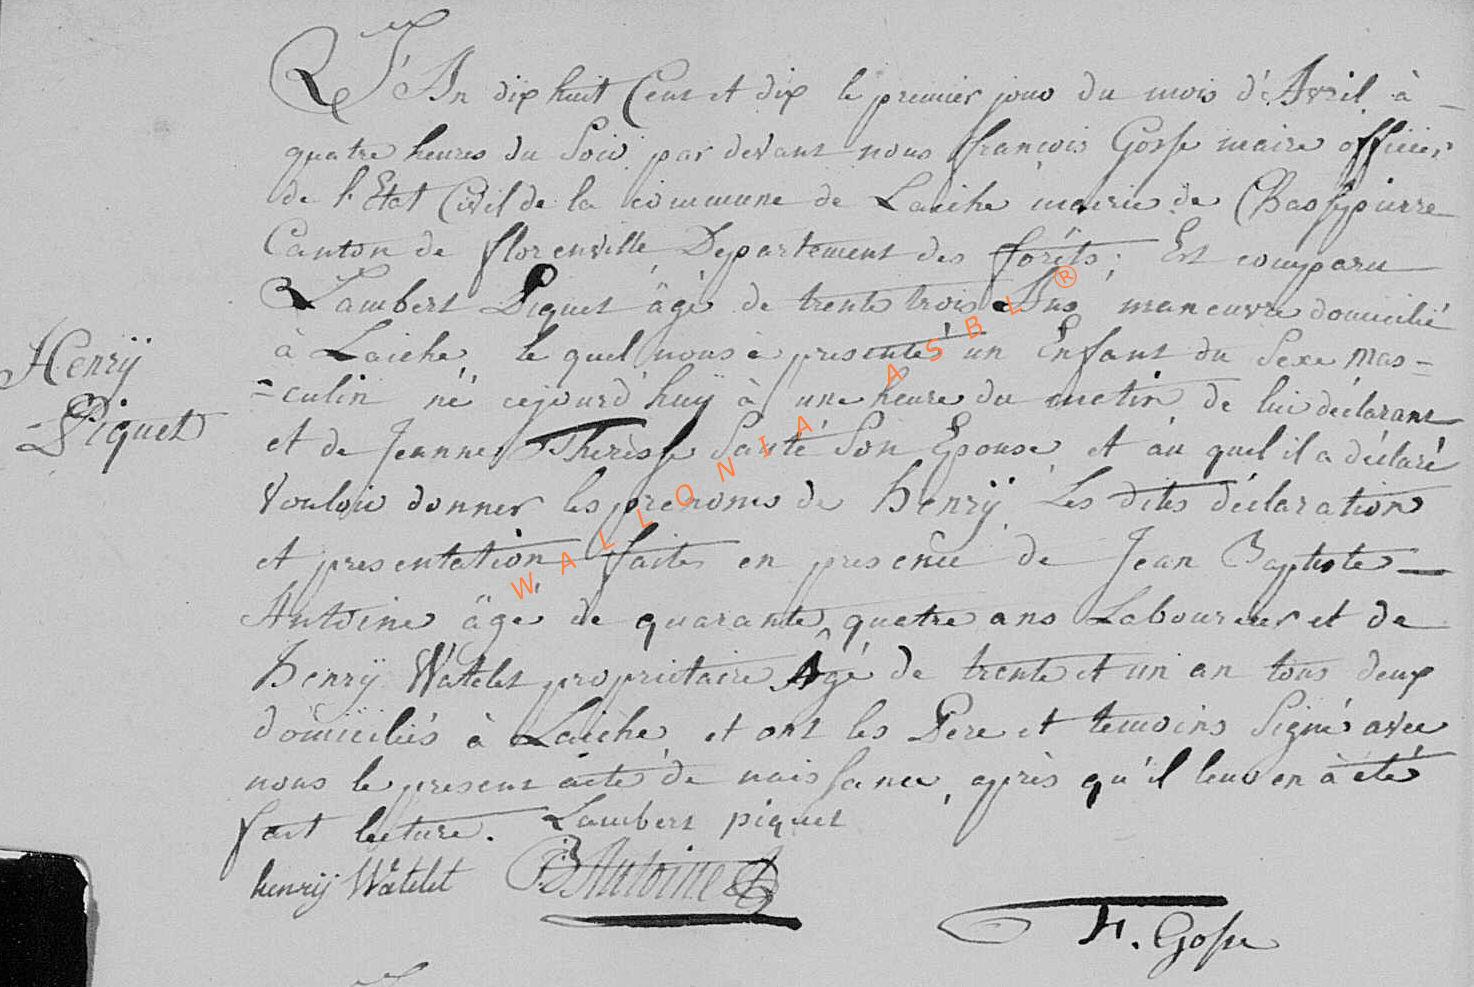 L'An dix huit Cent et dix le premier jour du mois d'Avril à
quatre heures du Soir par devant nous françois Gosse maire officier
de l'Etat Civil de la commune de Laiche mairie de Chassepierre
Canton de florenville Departement des forêts; Est comparu
Lambert Piquet âgé de trente trois Ans, maneuvre domicilié
à Laiche, le quel nous a presenté un Enfant du Sexe mas=
=culin né cejourd'huÿ à une heure du matin de lui déclarant
et de Jeanne Therèsse Santé Son Epouse et au quel il a déclaré
Vouloir donner les prenoms de henrÿ Les dites déclaration
et presentation faites en presence de Jean Baptiste
Antoine âgé de quarante quatre ans Laboureur et de
henrÿ Watelet propriétaire Agé de trente et un an tous deux
domiciliés à Laiche, et ont les Pere et temoins Signé avec
nous le present acte de naissance, après qu'il leur en à eté
fait lecture. Lambert piquet
henrÿ Watelet JB Antoine
F. Gosse
Henrÿ
Piquet
WALLONIA ASBL ®